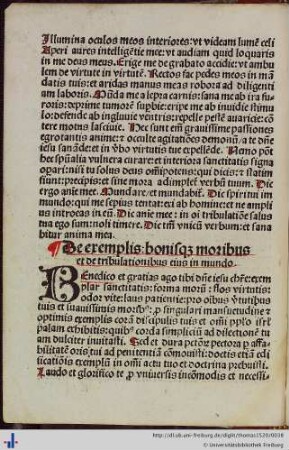 Illumina oculos meos interiores: vt videam lumē celi
Aperi aures intelligētie mee: vt audiam quid loquaris
in me deus meus. Erige me de grabato accidie: vt ambu
lem de virtute in virtutē. Rectos fac pedes meos in mā
datis tuis: et aridas manus meas robora ad diligenti
am laboris. Mūda me a lepra carnis: sana me ab ira fu
roris: deprime tumorē supbie: eripe me ab inuidie stimu
lo: defende ab ingluuie ventris: repelle pestē auaricie: cō
tere motus lasciuie. Hec sunt em̄ grauissime passiones
egrotantis anime: ⁊ occulte agitatiōes demonū: a te dn̄e
iesu sanāde: et in v̄bo curate: et virtutis tue expellēde. Nemo pōt
hec spūalia vulnera curare: et interiora sanctitatis signa
opari: nisi tu solus deus om̄ipotens: qui dicis: ⁊ statim
fiunt: precipis: et sine mora adimplet̄ verbū tuum. Dic
ergo aīe mee. Mundare: et mundabit̄. Dic spiritui im
mundo: qui me sepius tentat: exi ab homine: et ne ampli
us introeas in eū. Dic anie mee: in oī tribulatiōe salus
tua ego sum: noli timere. Dic tm̄ vnicū verbum: et sana
bitur anima mea.
De exemplis: bonisqꝫ moribus
et de tribulationibus eius in mundo.
BEnedico et gratias ago tibi dn̄e iesu chr̄e: exem
plar sanctitatis: forma morū: flos virtutis:
odor vite: laus patientie: pro oībus v̄tutibus
tuis et suauissimis moribꝰ: ⁊ singulari mansuetudine ⁊
optimis exemplis corā discipulis tuis et om̄i pplo isrl̄
palam exhibitis: quibꝰ corda simpliciū ad dilectionē tu
am dulciter inuitasti. Sed et dura pectora peccatorū ꝑ affa-
bilitatē oris tui ad penitentiā cōmouisti: doctis etiā edi
ficatiōis exemplū in om̄i actu tuo et doctrina prebuisti.
Laudo et glorifico te ꝓ vniuersis incōmodis et necessi-
http://dl.ub.uni-freiburg.de/diglit/thomas1520/0038
© Universitätsbibliothek Freiburg